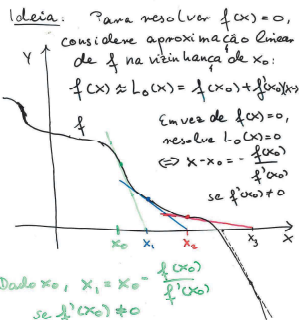 Ideia: Para resolver f(x)=0,
considere aproximação linear
de f na vizinhança de x₀:
f(x) ≈ L₀(x) = f(x₀) + f'(x₀)(x-
Em vez de f(x)=0,
resolve L₀(x)=0
⇔ x-x₀ = - f(x₀)/f'(x₀)
se f'(x₀) ≠ 0
Y
f
x₀ x₁ x₂ x₃ X
Dado x₀, x₁ = x₀ - f(x₀)/f'(x₀)
se f'(x₀) ≠ 0